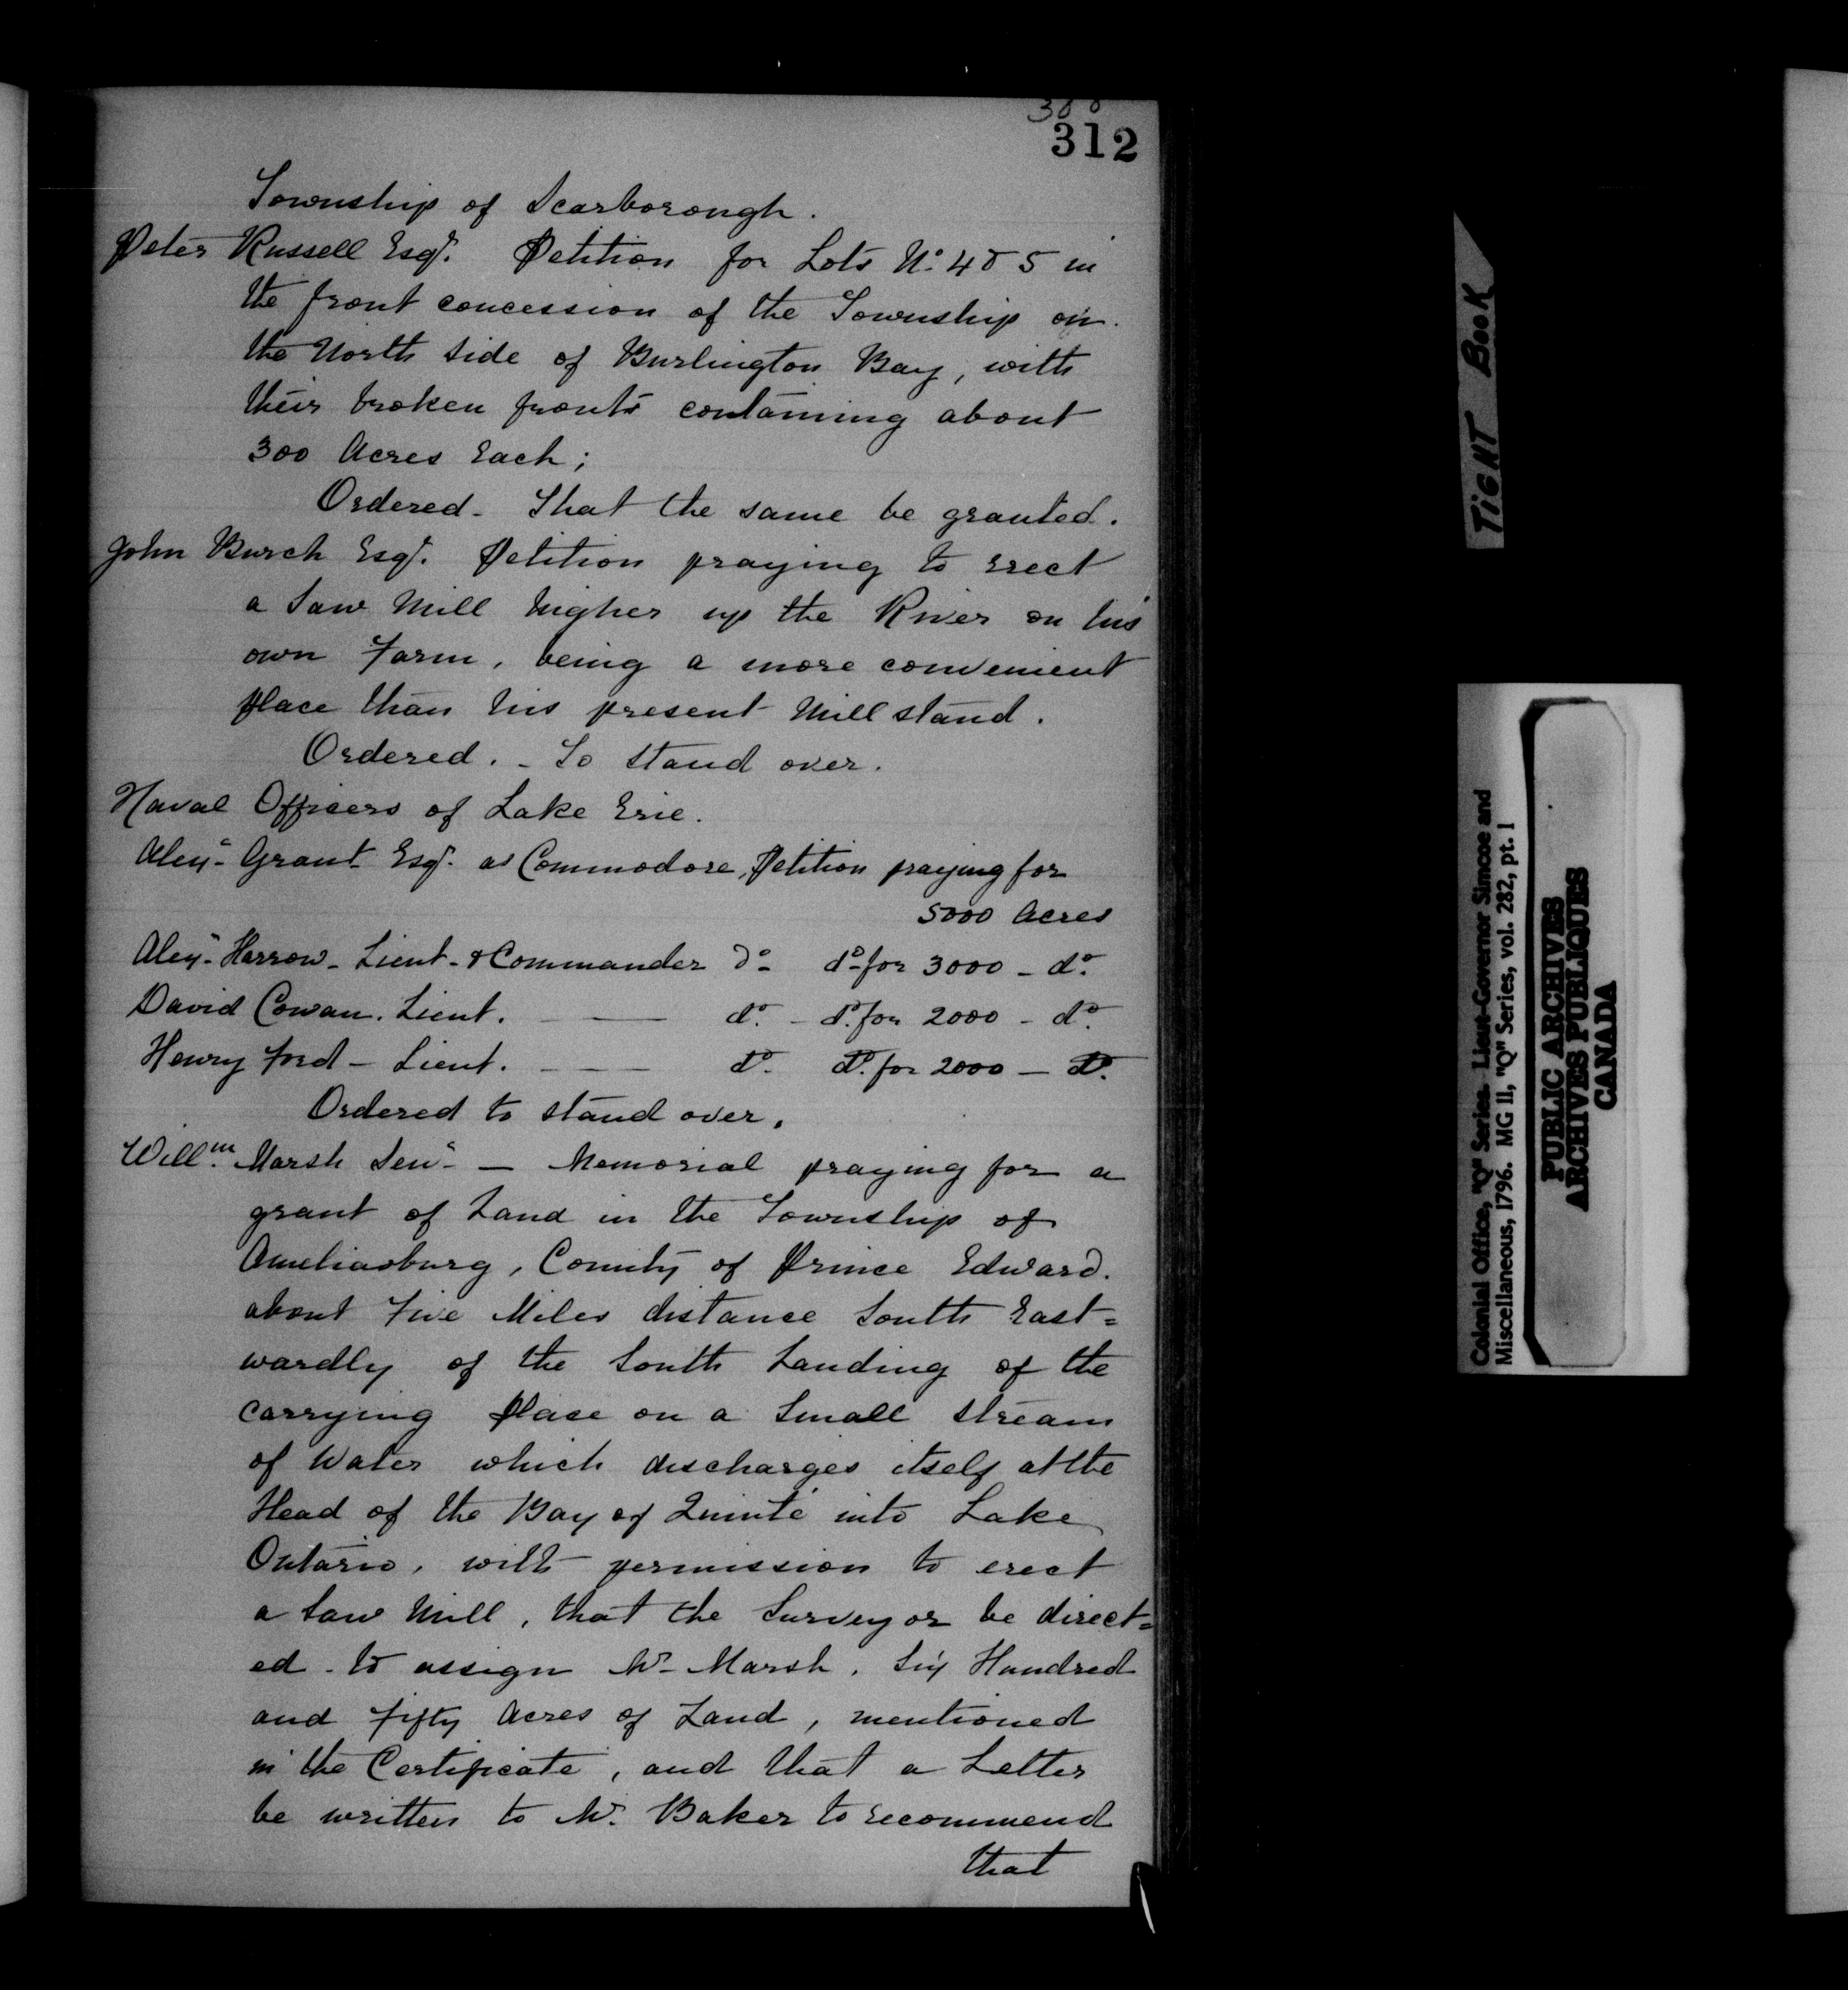 300
312
Township of Scarborough.
Peter Russell Esqr. Petition for Lots No. 4 & 5 in
the front concession of the Township on
the North side of Burlington Bay, with
their broken fronts containing about
300 Acres Each;
Ordered - That the same be granted.
John Burch Esqr. Petition praying to Erect
a Saw Mill higher up the River on his
own Farm, being a more convenient
place than his present Mill stand.
Ordered. - To Stand over.
Naval Officers of Lake Erie.
Alexr. Grant Esqr. as Commodore, Petition praying for
5000 Acres
Alexr. Harrow - Lieut. & Commander do. do. for 3000 - do.
David Cowan. Lieut. - — do. - do. for 2000 - do.
Henry Ford - Lieut. - — — do. do. for 2000 - do.
Ordered to stand over.
Willm. Marsh Senr. - Memorial praying for a
grant of Land in the Township of
Ameliasburg, County of Prince Edward.
about Five Miles distance South East=
wardly of the South Landing of the
Carrying Place on a Small Stream
of Water which discharges itself at the
Head of the Bay of Quinté into Lake
Ontario, with permission to erect
a Saw Mill, that the Surveyor be direct=
ed - to assign Mr. Marsh. Six Hundred
and fifty Acres of Land, mentioned
in the Certificate, and that a Letter
be written to Mr. Baker to recommend
that
TIGHT BOOK
Colonial Office, "Q" Series. Lieut-Governor Simcoe and
Miscellaneous, 1796. MG 11, "Q" Series, vol. 282, pt. 1
PUBLIC ARCHIVES
ARCHIVES PUBLIQUES
CANADA